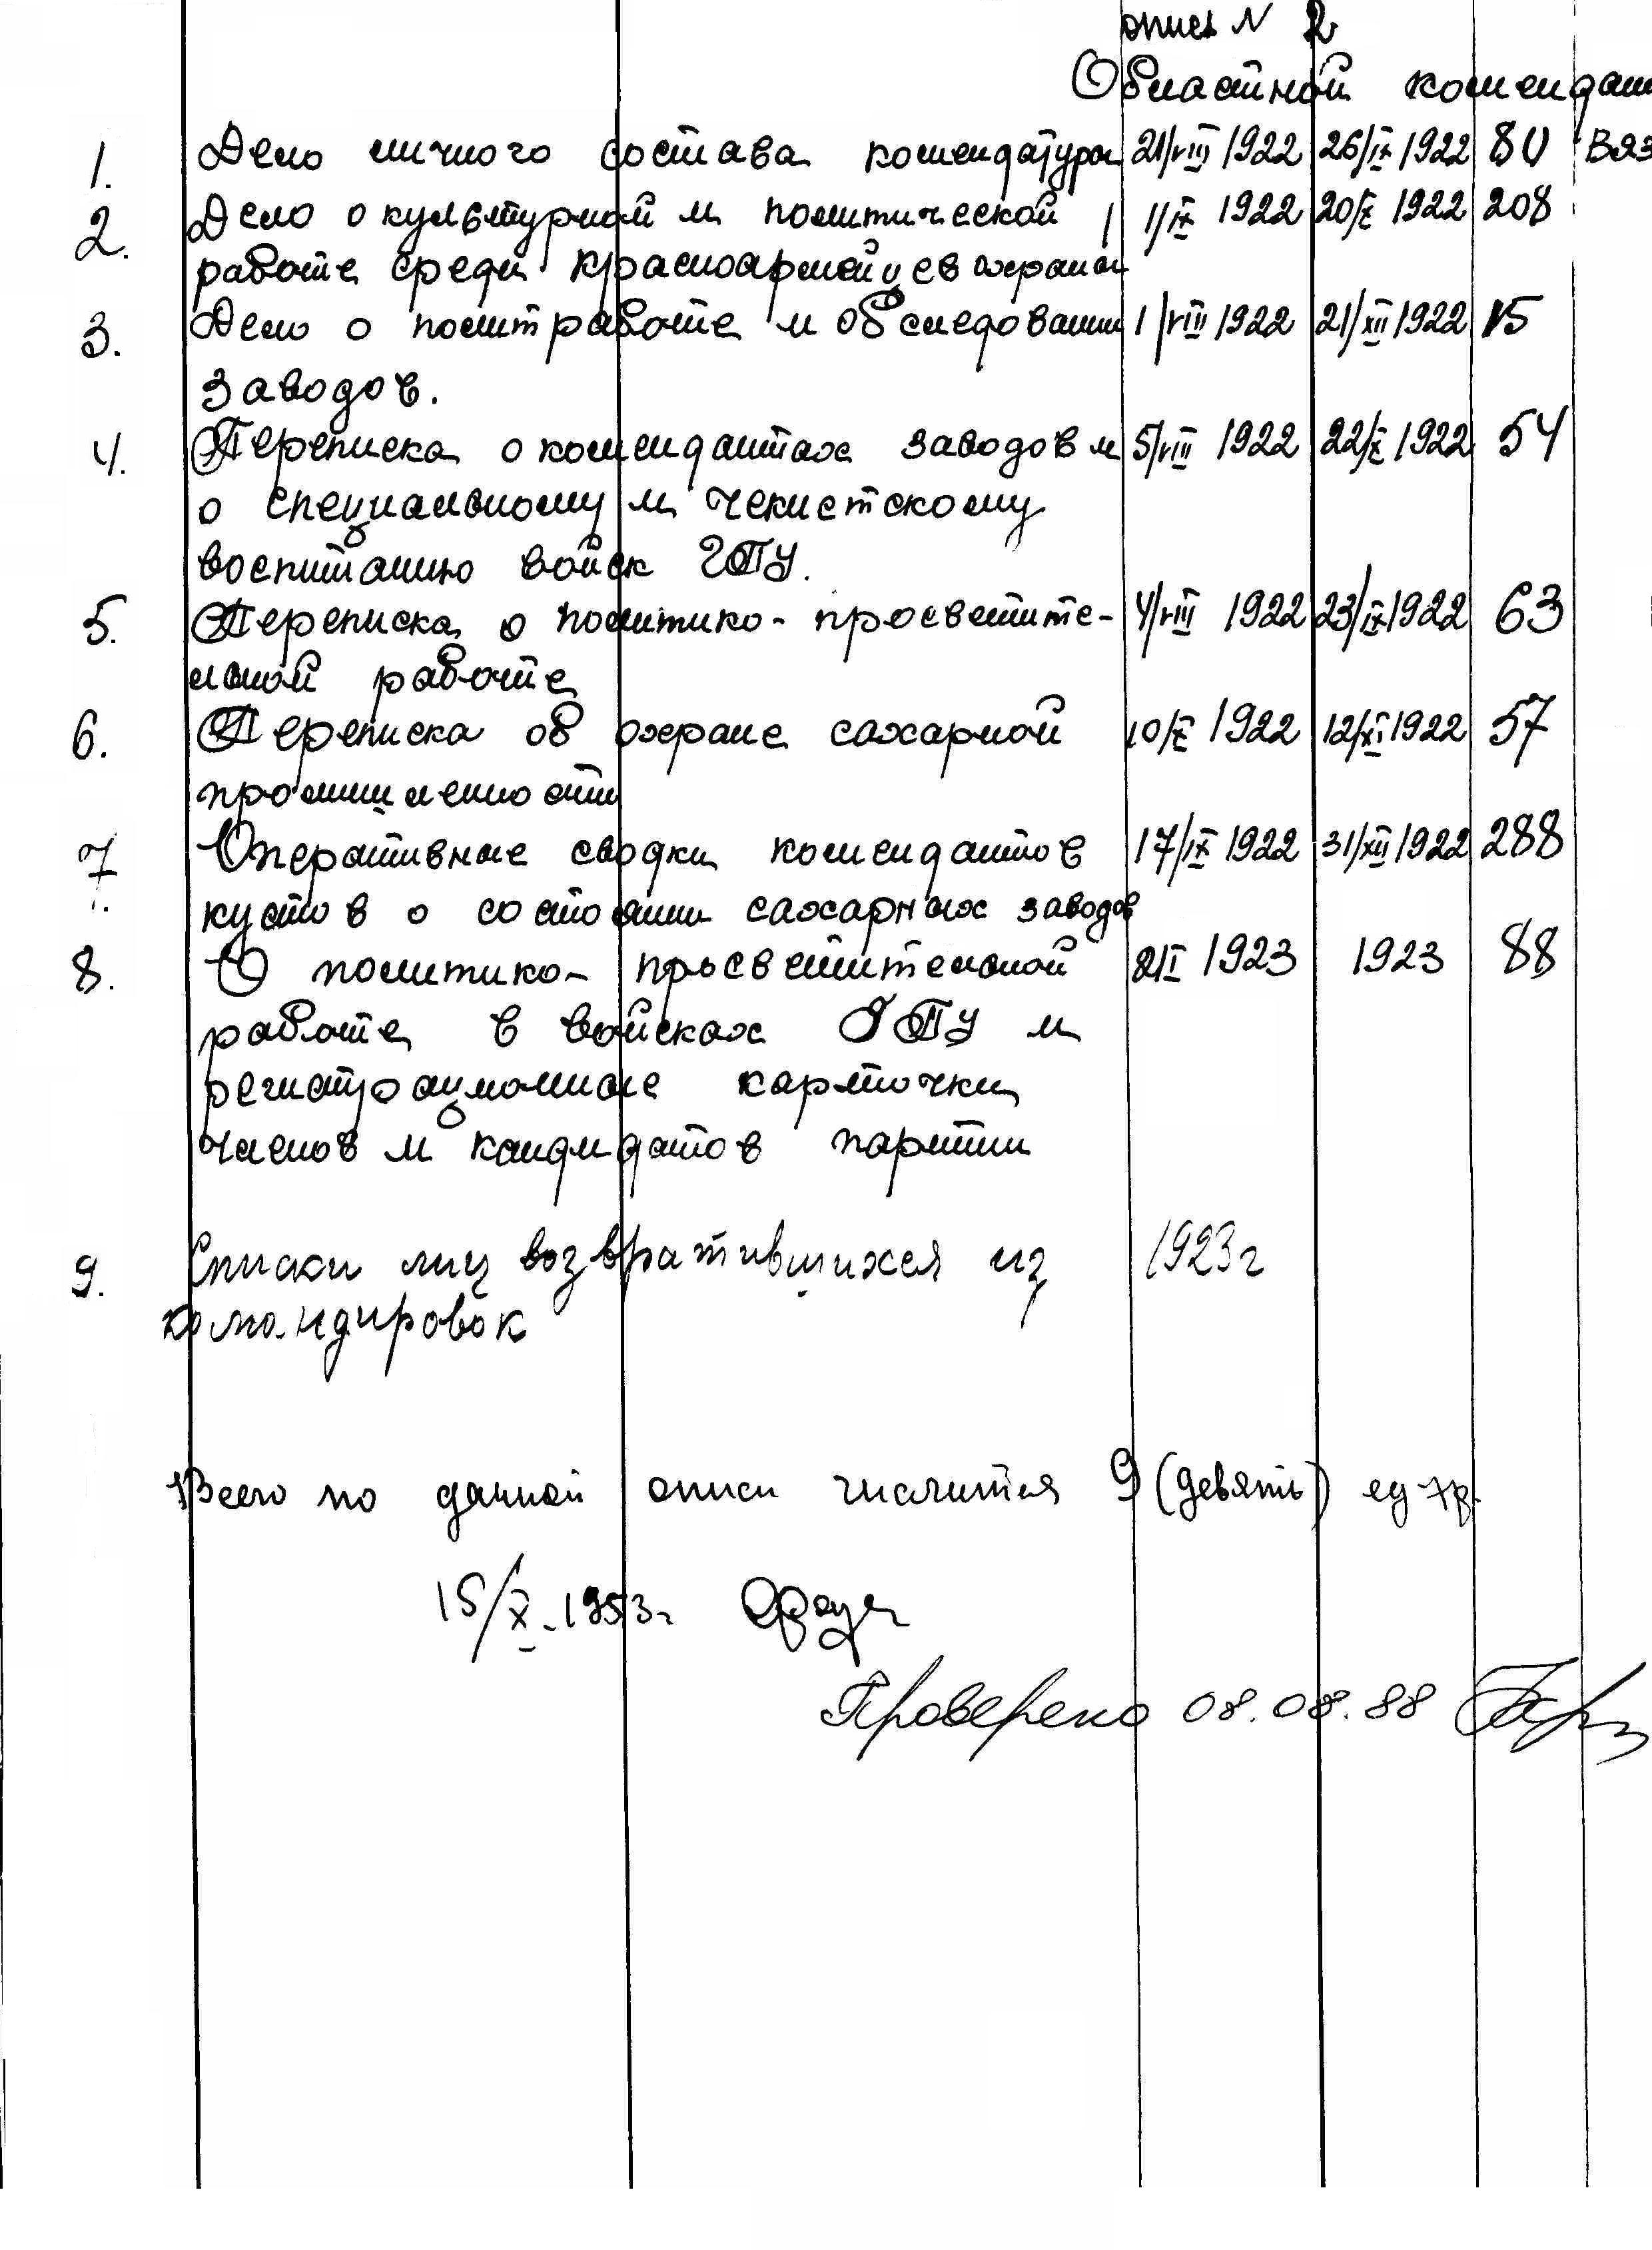 опись № 2
Областной комендат
1. Дело личного состава комендатуры 21/VIII 1922 26/IX 1922 80 Вяз
2. Дело о культурной и политической 1/IX 1922 20/X 1922 208
работе среди красноармейцев охраны
3. Дело о политработе и обследовании 1/VIII 1922 21/XII 1922 15
заводов.
4. Переписка о комендантах заводов и 5/VIII 1922 22/X 1922 54
о специальному и чекистскому
воспитанию войск ГПУ.
5. Переписка о политико-просветите- 4/VIII 1922 23/IX 1922 63
льной работе
6. Переписка об охране сахарной 10/X 1922 12/XI 1922 57
промышленности
7. Оперативные сводки комендантов 17/IX 1922 31/XII 1922 288
кустов о состоянии сахарных заводов
8. О политико-просветительной 2/I 1923 1923 88
работе в войсках ГПУ и
регистрационные карточки
членов и кандидатов партии
9. Списки лиц возвратившихся из 1923 г
командировок
Всего по данной описи числится 9 (девять) ед хр.
15/X-1953 г
Проверено 08.08.88